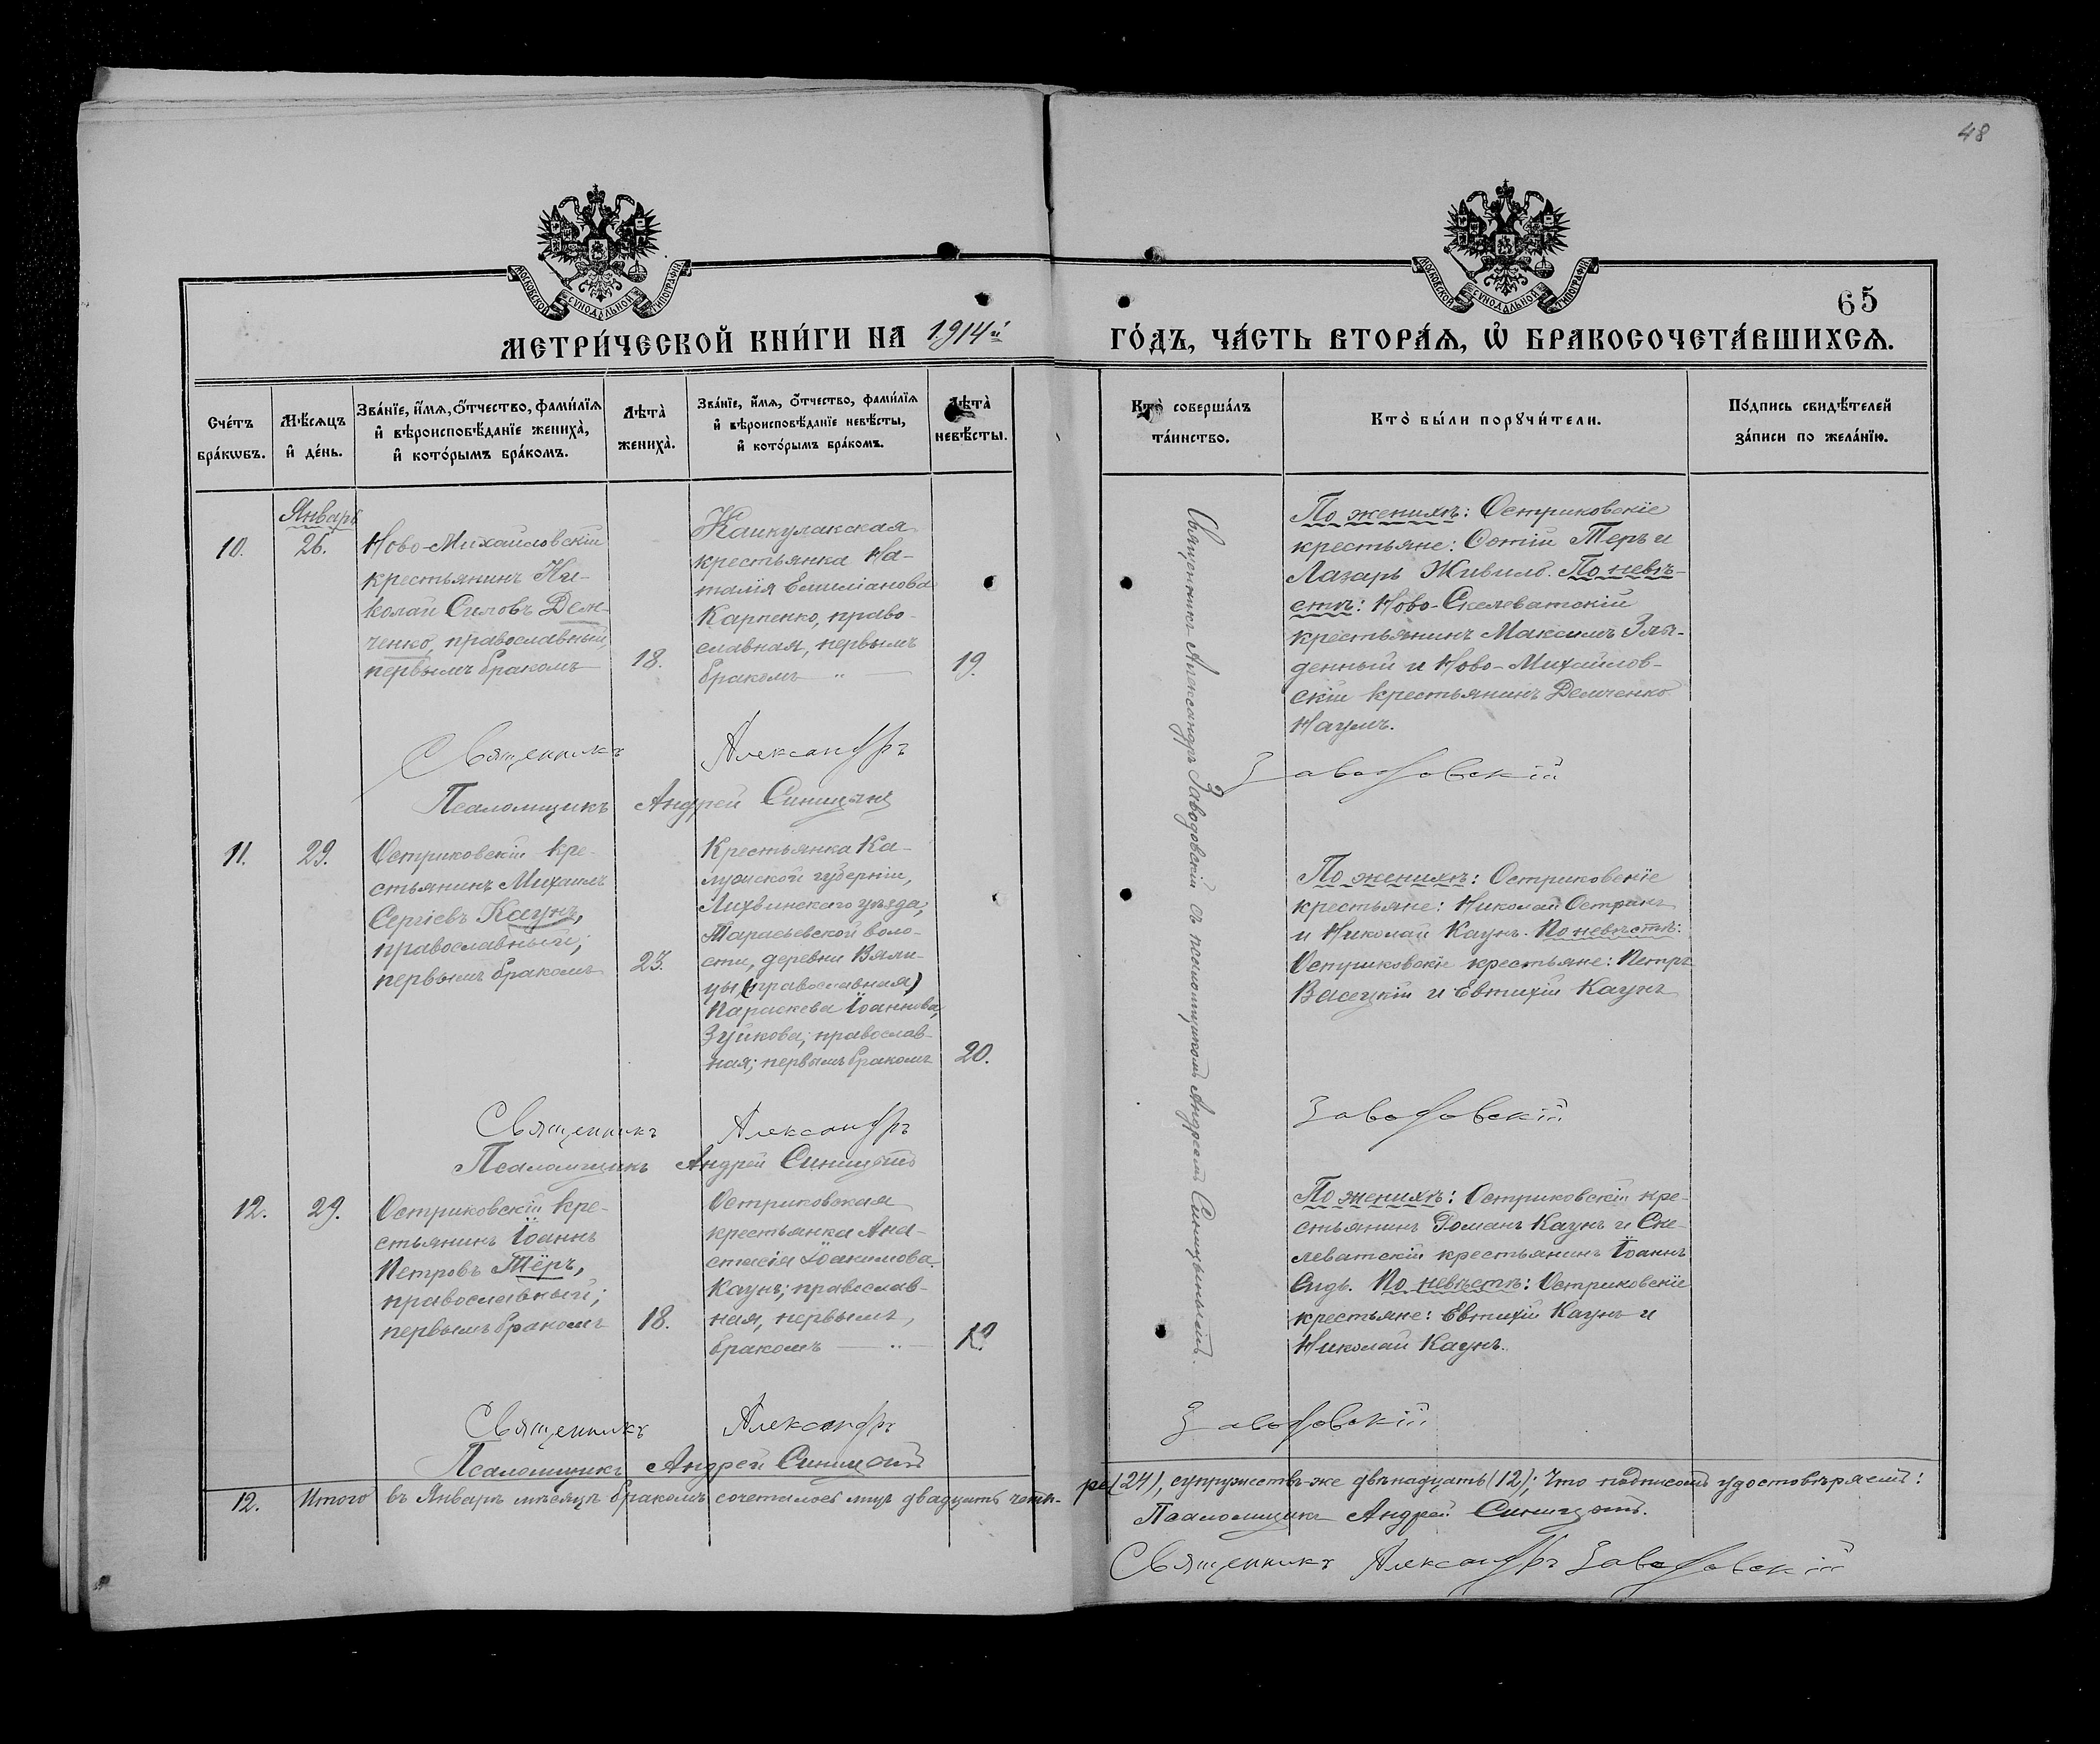 48
МОСКОВСКОЙ СѴНОДАЛЬНОЙ ТИПОГРАФІИ
МОСКОВСКОЙ СѴНОДАЛЬНОЙ ТИПОГРАФІИ
65
МЕТРИ́ЧЕСКОЙ КНИ́ГИ НА 1914й ГО́ДЪ, ЧА́СТЬ ВТОРА́Я, Ѽ БРАКОСОЧЕТА́ВШИХСЯ.
Сче́тъ
бра́кωвъ.
Мѣ́сяцъ
и҆ де́нь.
Зва́нїе, и҆́мя, ѻ҆́тчество, фами́лїя
и҆ вѣроисповѣ́данїе жениха̀,
и҆ кото́рымъ бра́комъ.
Лѣта̀
жениха̀.
Зва́нїе, и҆́мя, ѻ҆́тчество, фами́лїя
и҆ вѣроисповѣ́данїе невѣ́сты,
и҆ кото́рымъ бра́комъ.
Лѣта̀
невѣ́сты.
Кто̀ соверша́лъ
та́инство.
Кто̀ бы́ли порꙋчи́тели.
По́дпись свидѣ́телей
за́писи по жела́нїю.
10.
Январь
26.
Ново-Михайловскій
крестьянинъ Ни-
колай Силовъ Дем-
ченко, православный,
первымъ бракомъ
18.
Каикулакская
крестьянка На-
талія Емиліанова
Карпенко, право-
славная, первымъ
бракомъ — " —
19.
Священникъ Александръ Заводовскій съ псаломщикомъ Андреемъ Синицынымъ.
По женихѣ: Остриковскіе
крестьяне: Фотій Теръ и
Лазарь Живило. По невѣ-
стѣ: Ново-Скелеватскій
крестьянинъ Максимъ Злы-
денный и Ново-Михайлов-
скій крестьянинъ Демченко
Наумъ.
Священникъ Александръ Заводовскій
Псаломщикъ Андрей Синицынъ
11.
29.
Остриковскій кре-
стьянинъ Михаилъ
Сергіевъ Каунъ,
православный;
первымъ бракомъ
23.
Крестьянка Ка-
лужской губерніи,
Лихвинскаго уѣзда,
Тарасьевской воло-
сти, деревни Вяли-
цы (православная)
Параскева Іоаннова,
Зуйкова; православ-
ная; первымъ бракомъ
20.
По женихѣ: Остриковскіе
крестьяне: Николай Острикъ
и Николай Каунъ. По невѣстѣ:
Остриковскіе крестьяне: Петръ
Васецкій и Евтихій Каунъ
Священникъ Александръ Заводовскій
Псаломщикъ Андрей Синицынъ
12.
29.
Остриковскій кре-
стьянинъ Іоаннъ
Петровъ Тёръ,
православный;
первымъ бракомъ
18.
Остриковская
крестьянка Ана-
стасія Іоакимова
Каунъ; православ-
ная, первымъ,
бракомъ — " —
По женихѣ: Остриковскій кре-
стьянинъ Романъ Каунъ и Ске-
леватскій крестьянинъ Іоаннъ
По невѣстѣ: Остриковскіе
крестьяне: Евтихій Каунъ и
Николай Каунъ.
Священникъ Александръ Заводовскій
Псаломщикъ Андрей Синицынъ
12. Итого въ Январѣ мѣсяцѣ бракомъ сочеталось лицъ двадцать четы-
ре (24), супружествъ-же двѣнадцать (12); что подписомъ удостовѣряемъ:
Псаломщикъ Андрей Синицынъ.
Священникъ Александръ Заводовскій